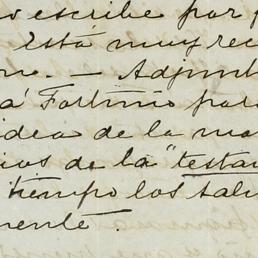 escribe por
Está muy rec
— Adjunt
á Fortunio par
idea de la ma
ios de la "testa
tiempo los salu
mente.